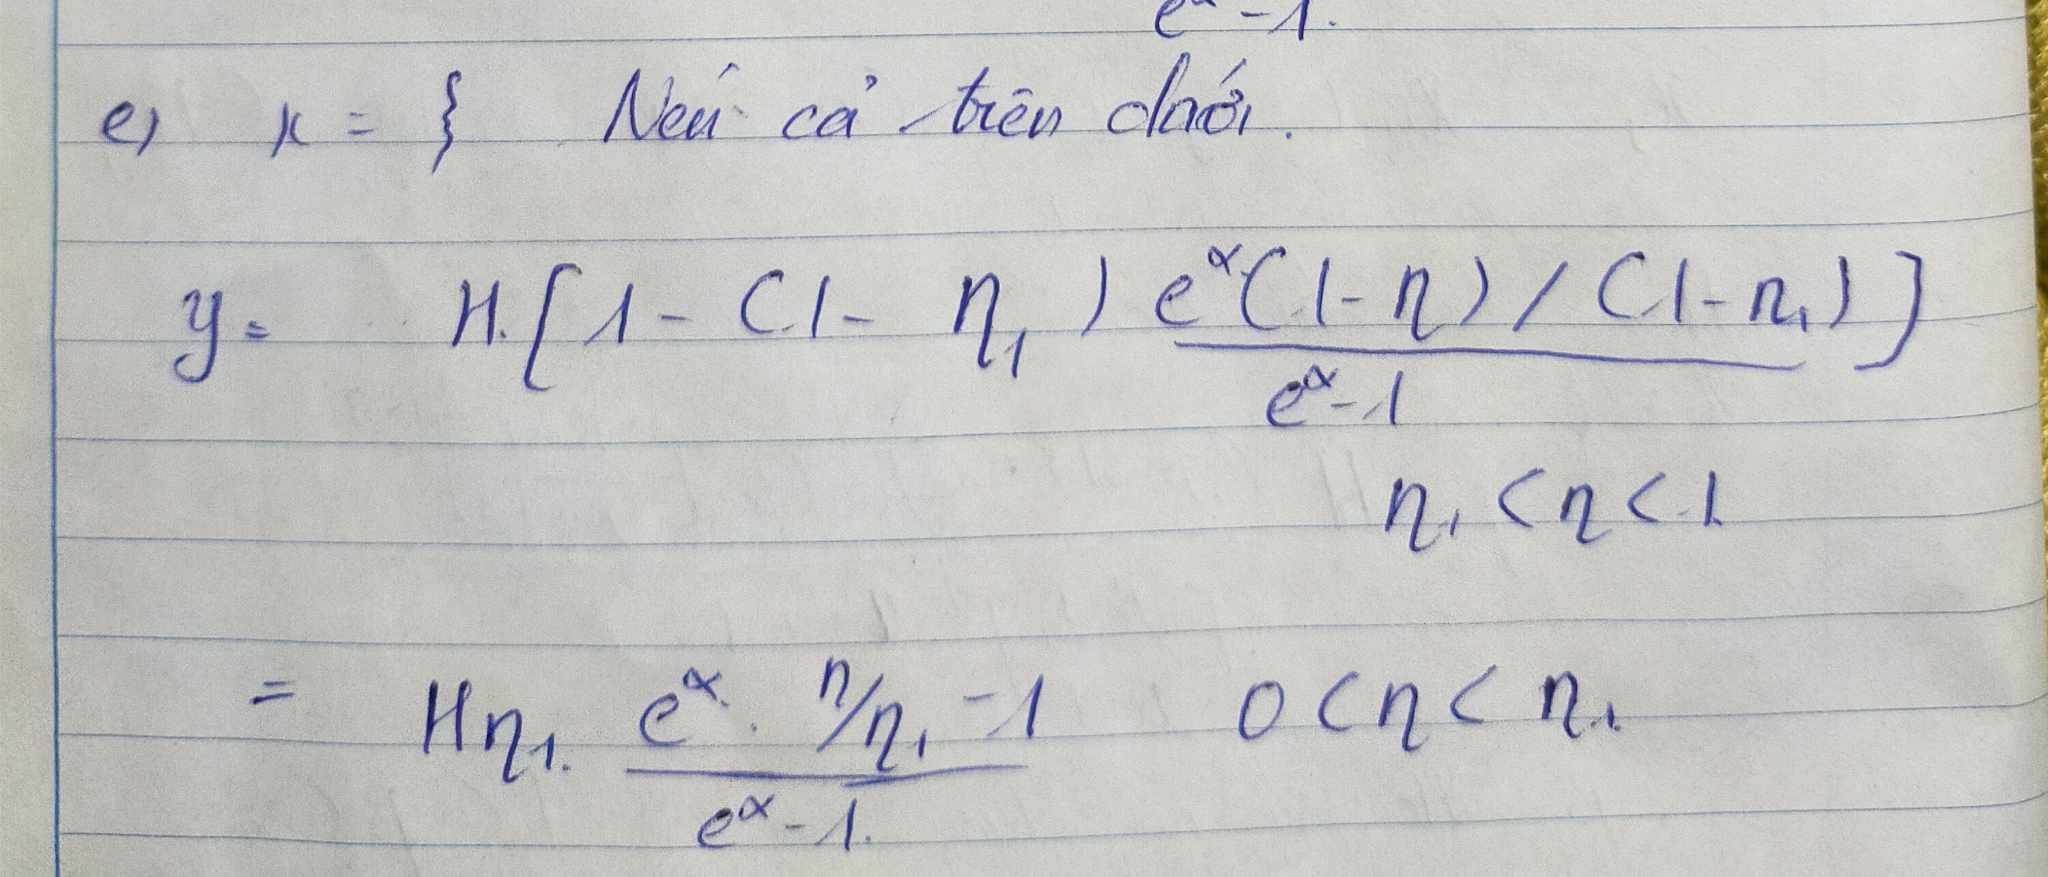 e^α - 1.
e) x = { Nếu cả trên dưới.
y = H.[1 - (1 - η₁) e^α(1-η)/(1-η₁)]
e^α - 1
η₁ < η < 1
= Hη₁. e^α. η/η₁ - 1 0 < η < η₁
e^α - 1.